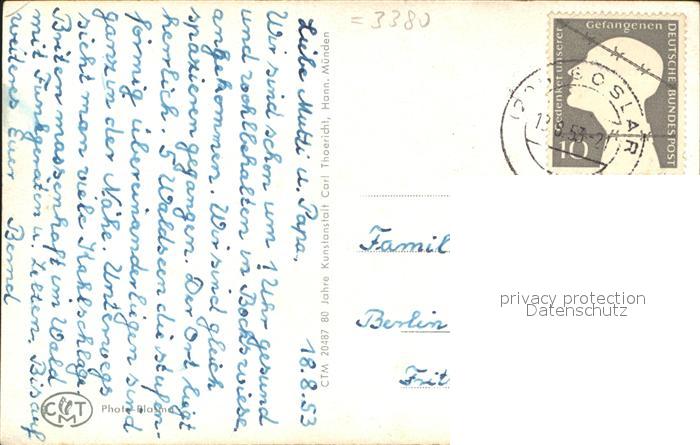 Liebe Mutti u. Papa. 18.8.53
Wir sind schon um 1 Uhr gesund
und wohlbehalten in Bockswiese
angekommen. Wir sind gleich
spazieren gegangen. Der Ort liegt
herrlich. 5 Waldseen die stufen-
förmig übereinanderliegen sind
ganz in der Nähe. Unterwegs
sieht man viele Kahlschläge
Briten massenhaft im Wald
mit Funkgeräten u. Zelten. Bis auf
weiteres Euer Bernd
CTM 20487 80 Jahre Kunstanstalt Carl Thoericht, Hann. Münden
= 3380
Gedenket unserer Gefangenen
DEUTSCHE BUNDESPOST
10
GOSLAR
Famil
Berlin
Frit
privacy protection
Datenschutz
CTM
Photo-Blasma